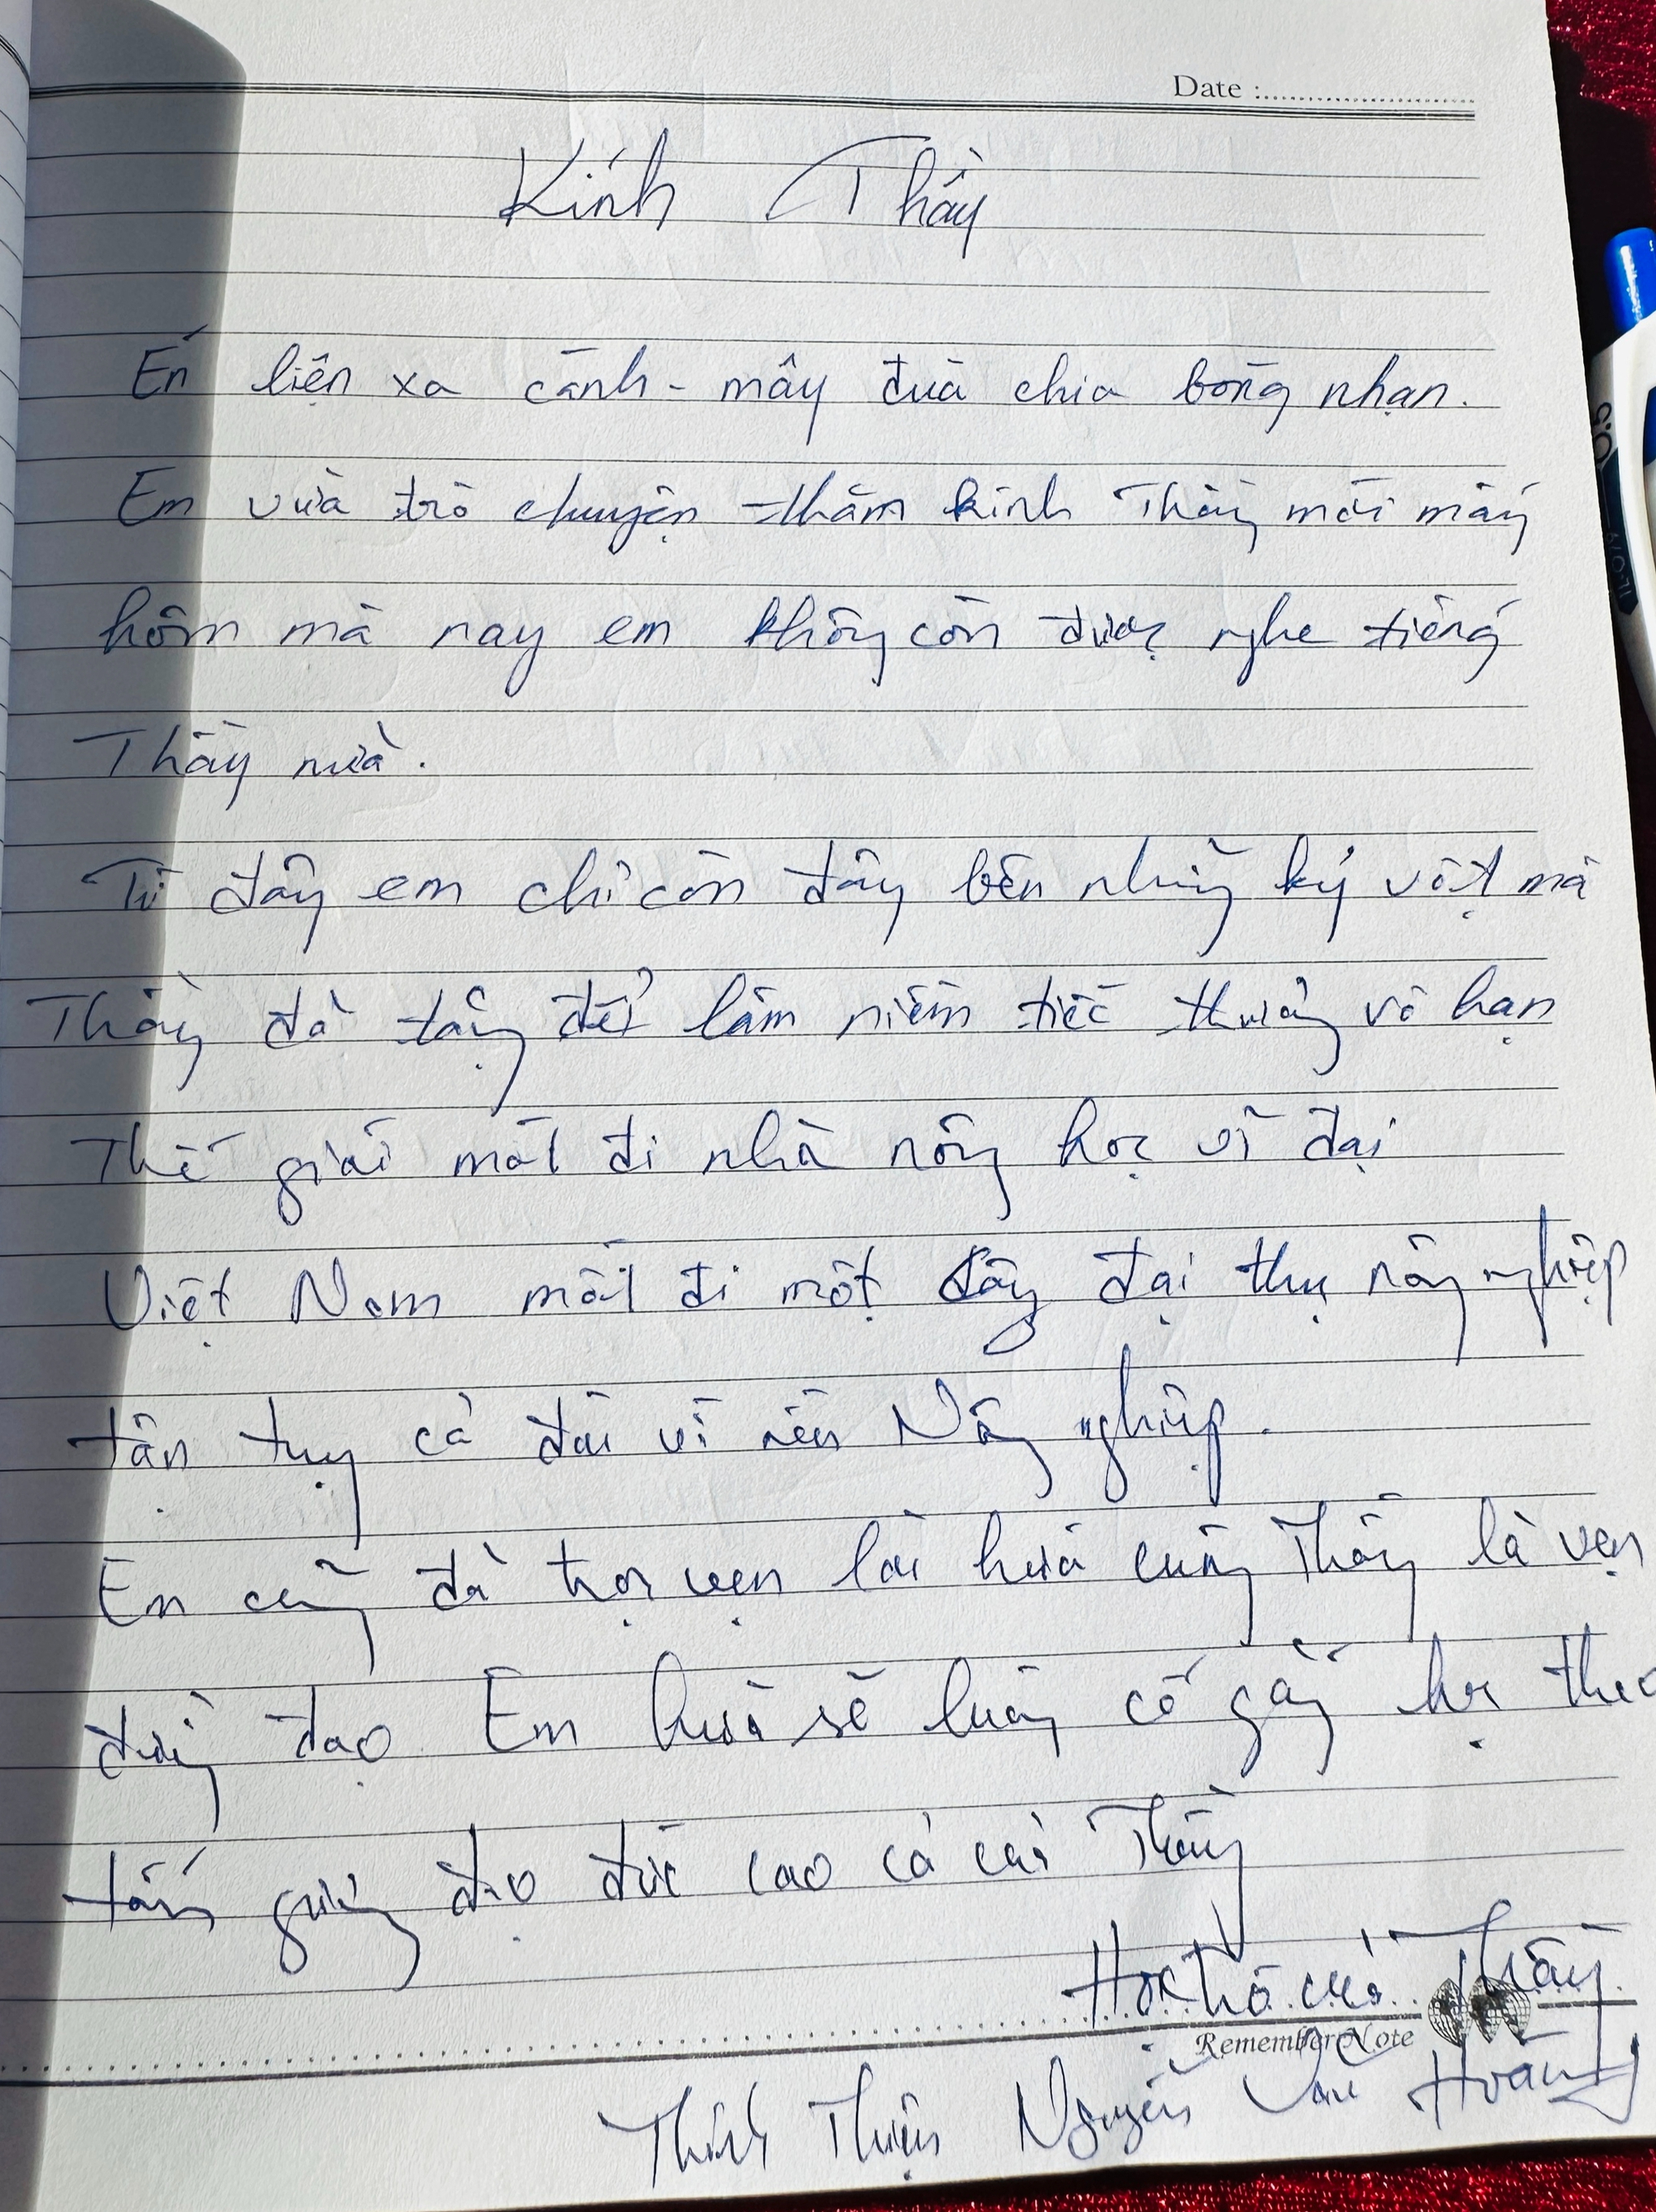 Date :
Kính Thầy
Én liện xa cành - mây đưa chia bóng nhạn.
Em vừa trò chuyện thăm kính Thầy mới mấy
hôm mà nay em không còn được nghe tiếng
Thầy nữa.
Từ đây em chỉ còn đây bên những kỷ vật mà
Thầy đã tặng để làm niềm tiếc thương vô hạn
Thế giới mất đi nhà nông học vĩ đại
Việt Nam mất đi một cây đại thụ nông nghiệp
tận tụy cả đời vì nền Nông nghiệp.
Em cũng đã trọn vẹn lời hứa cùng Thầy là vẹn
đường đạo. Em hứa sẽ luôn cố gắng học theo
tấm gương đạo đức cao cả của Thầy
Học trò của Thầy
Remember Note
Thiện Nguyễn Văn Hoàng